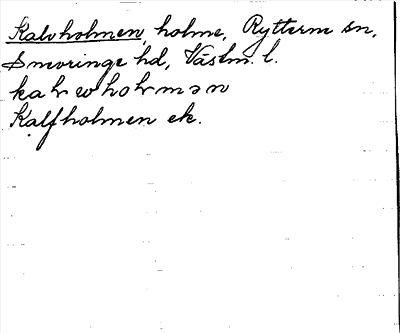 Kalvholmen, holme, Rytterne sn,
Snevringe hd, Västm. l.
Kalfholmen ek.